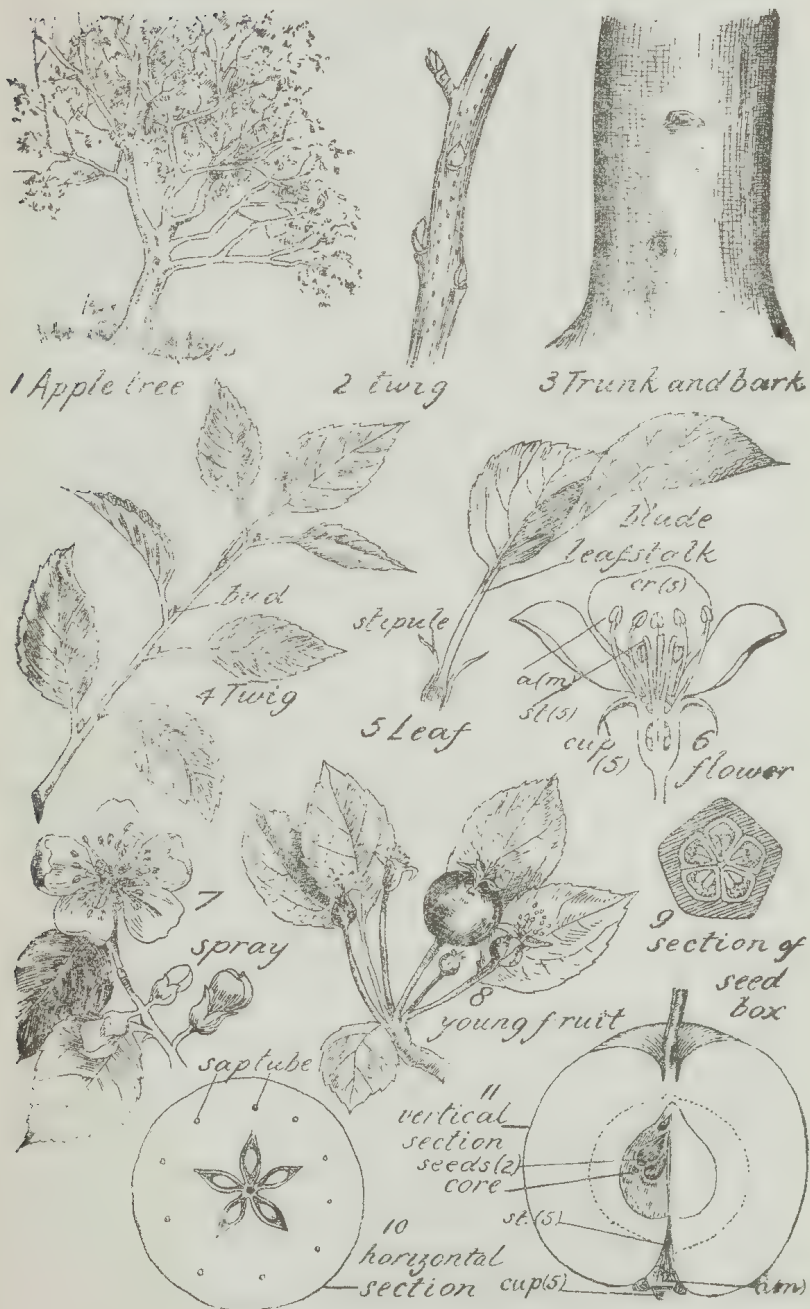 1 Apple tree
2 twig
3 Trunk and bark
bud
4 Twig
blade
leafstalk
stipule
5 Leaf
cr(5)
a(m)
st(5)
cup
(5)
6
flower
7
spray
8
young fruit
9
section of
seed
box
saptube
10
horizontal
section
11
vertical
section
seeds(2)
core
st.(5)
cup(5)
a(m)